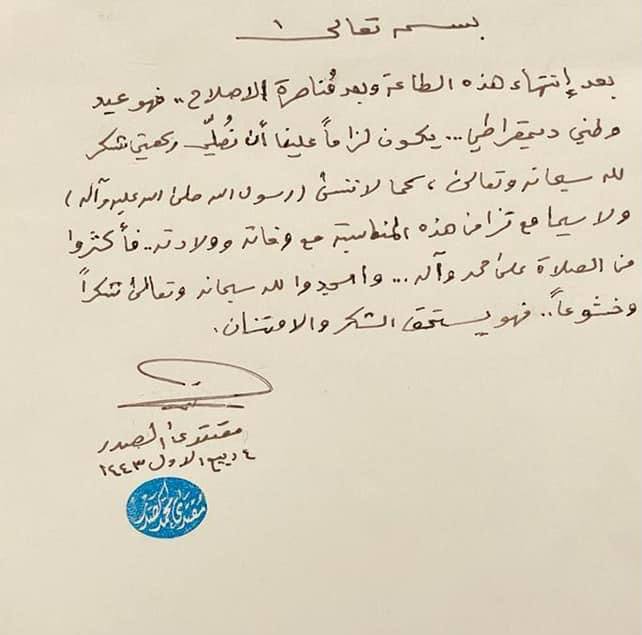 بسمه تعالى
بعد إنتهاء هذه الطاعة وبعد مُناصرة الاصلاح .. فهو عيد
وطني ديمقراطي ... يكون لزاماً علينا أن نُصلّي ركعتي شكر
لله سبحانه وتعالى ، كما لا ننسى (رسول الله صلى الله عليه وآله)
ولا سيما مع تزامن هذه المناسبة مع وفاته وولادته .. فأكثروا
من الصلاة على محمد وآله ... واسجدوا لله سبحانه وتعالى شكراً
وخشوعاً .. فهو يستحق الشكر والامتنان .
مقتدى الصدر
٤ ربيع الاول ١٤٤٣
مقتدى محمد الصدر